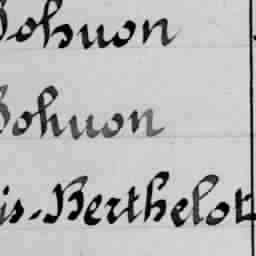 Bohuon
Bohuon
is-Berthelot